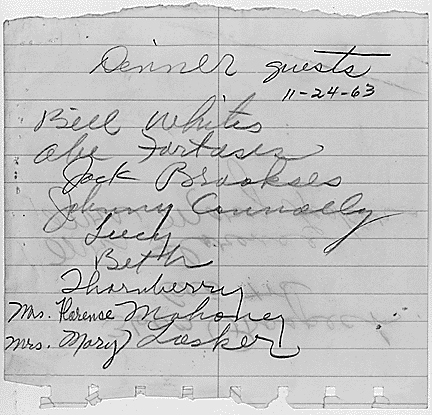 Dinner guests
11-24-63
Bill Whites
Abe Fortases
Jack Brookses
Johnny Connolly
Lucy
Beth
Thornberry
Mrs. Florence Mahoney
Mrs. Mary Lasker